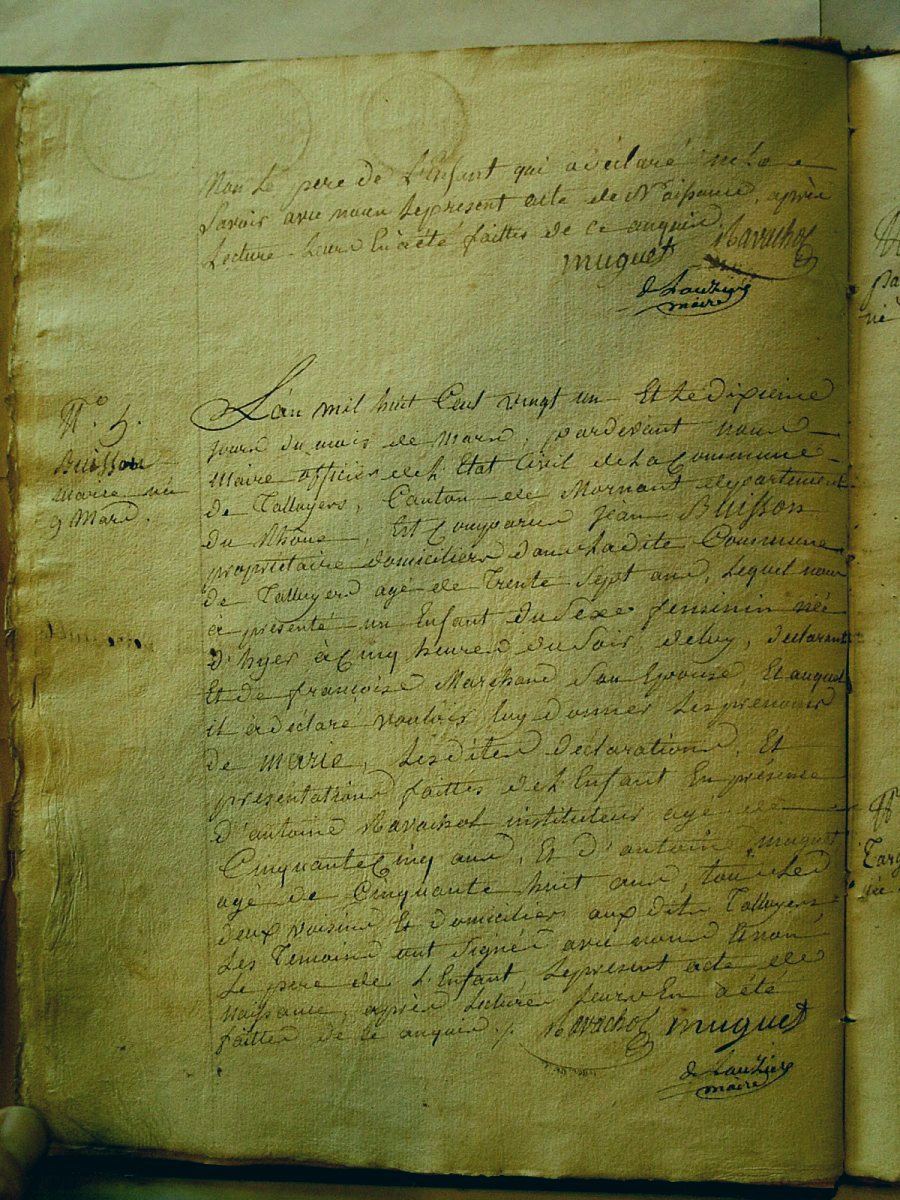 Non Le pere de L'Enfant qui a déclaré ne Le
Savoir avec nous Le present acte de Naissance, après
Lecture Leurs En à été faittes de ce anquis
muguet Ravachol
maire
L'an mil huit Cent vingt un Et Le dixieme
jours du mois de Mars, pardevant nous
Maire officier de L'Etat Civil de La Commune
de Talluyers, Canton de Mornant departement
du Rhône, Est Comparus Jean Buisson
propriétaire domiciliers dans Ladite Commune
de Talluyers agé de Trente Sept ans, Lequel nous
a presenté un Enfant du Sexe feminin née
d'hyer à Cinq heures du Soir de luy, declarant
Et de françoise Marchand Son Epouse, Et auquel
il à déclaré vouloir luy donner Les prenoms
de marie, Lesdites declarations, Et
présentations faittes de L'Enfant En présence
d'antoine Ravachol instituteur agé de
Cinquante Cinq ans, Et d'antoine muguet
agé de Cinquante huit ans, tous Les
deux voisins Et domiciliers aux dit Talluyers
Les Temoins ont Signée avec nous Et non
Le pere de L'Enfant Le present acte de
naissance, après Lecture Leurs En à été
faittes de ce anquis ./. Ravachol muguet
maire
N.º 5.
Buisson
Marie née
9 Mars.